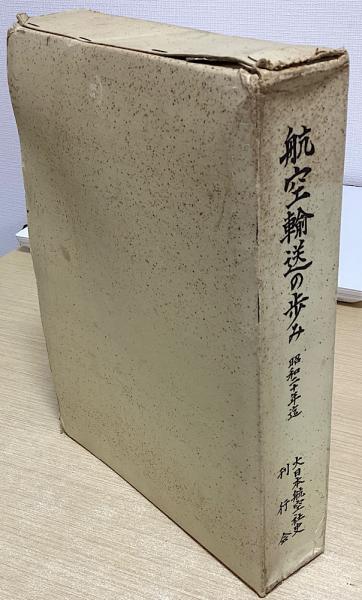 航空輸送の歩み
昭和二十年迄
大日本航空社史
刊行会